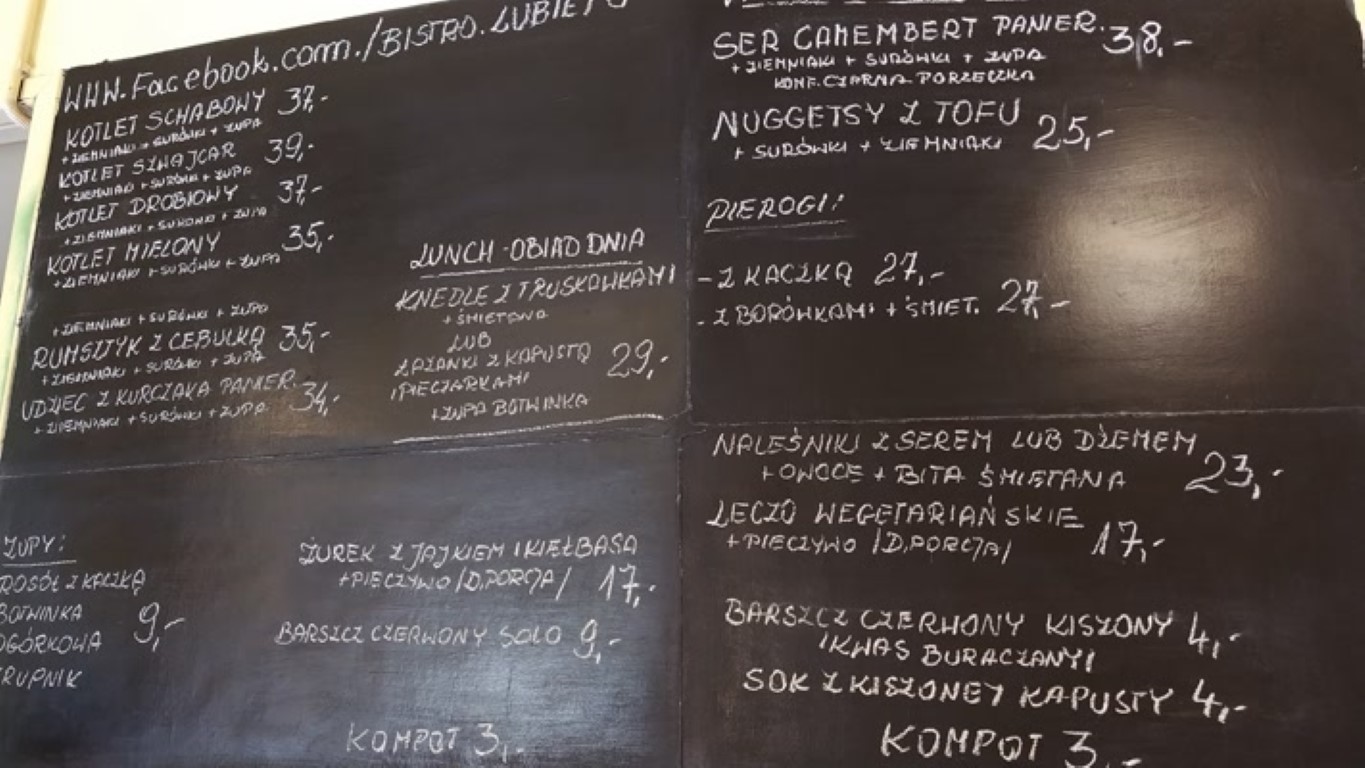 WWW.Facebook.com./BISTRO.LUBIĘTO
KOTLET SCHABOWY 37,-
+ ZIEMNIAKI + SURÓWKI + ZUPA
KOTLET SZWAJCAR 39,-
+ ZIEMNIAKI + SURÓWKI + ZUPA
KOTLET DROBIOWY 37,-
+ ZIEMNIAKI + SURÓWKI + ZUPA
KOTLET MIELONY 35,-
+ ZIEMNIAKI + SURÓWKI + ZUPA
+ ZIEMNIAKI + SURÓWKI + ZUPA
RUMSZTYK Z CEBULKĄ 35,-
+ ZIEMNIAKI + SURÓWKI + ZUPA
UDZIEC Z KURCZAKA PANIER. 34,-
+ ZIEMNIAKI + SURÓWKI + ZUPA
LUNCH - OBIAD DNIA
KNEDLE Z TRUSKAWKAMI
+ ŚMIETANA
LUB
ŁAZANKI Z KAPUSTĄ 29,-
I PIECZARKAMI
+ ZUPA BOTWINKA
ZUPY:
ROSÓŁ Z KACZKĄ
BOTWINKA
OGÓRKOWA 9,-
KRUPNIK
ŻUREK Z JAJKIEM I KIEŁBASĄ
+ PIECZYWO /D.PORCJA/ 17,-
BARSZCZ CZERWONY SOLO 9,-
KOMPOT 3,-
SER CAMEMBERT PANIER. 38,-
+ ZIEMNIAKI + SURÓWKI + ZUPA
KONF. CZARNA PORZECZKA
NUGGETSY Z TOFU 25,-
+ SURÓWKI + ZIEMNIAKI
PIEROGI:
- Z KACZKĄ 27,-
- Z BORÓWKAMI + ŚMIET. 27,-
NALEŚNIKI Z SEREM LUB DŻEMEM
+ OWOCE + BITA ŚMIETANA 23,-
LECZO WEGETARIAŃSKIE
+ PIECZYWO /D.PORCJA/ 17,-
BARSZCZ CZERWONY KISZONY 4,-
/KWAS BURACZANY/
SOK Z KISZONEJ KAPUSTY 4,-
KOMPOT 3,-